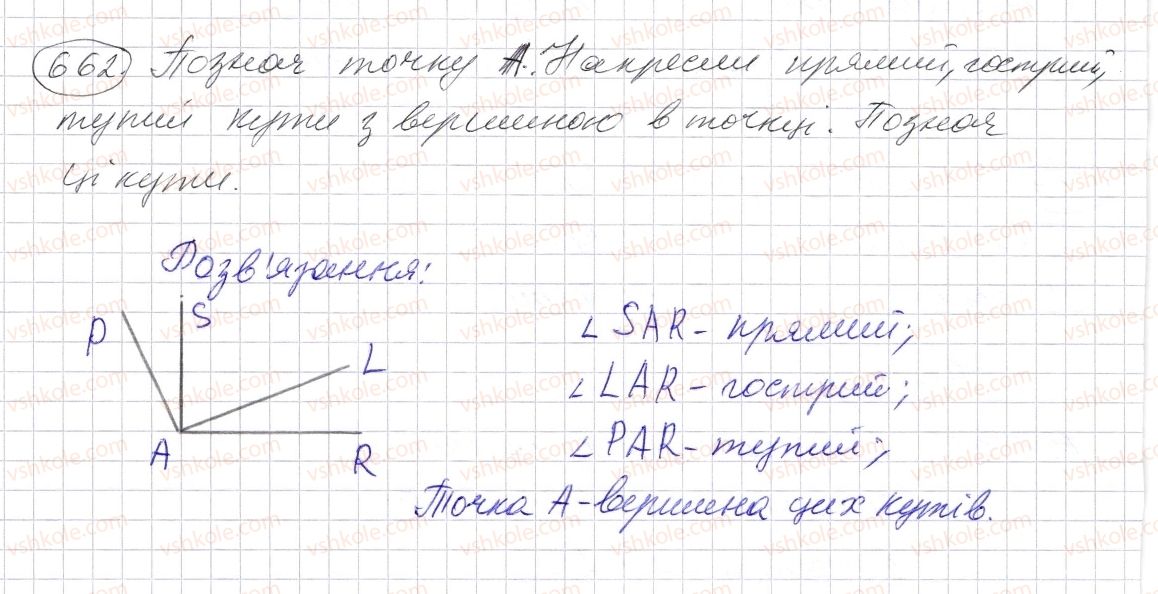 662. Познач точку А. Накресли прямий, гострий,
тупий кути з вершиною в точці. Познач
ці кути.
Розв'язання:
P
S
L
A
R
∠SAR - прямий;
∠LAR - гострий;
∠PAR - тупий;
Точка А - вершина цих кутів.